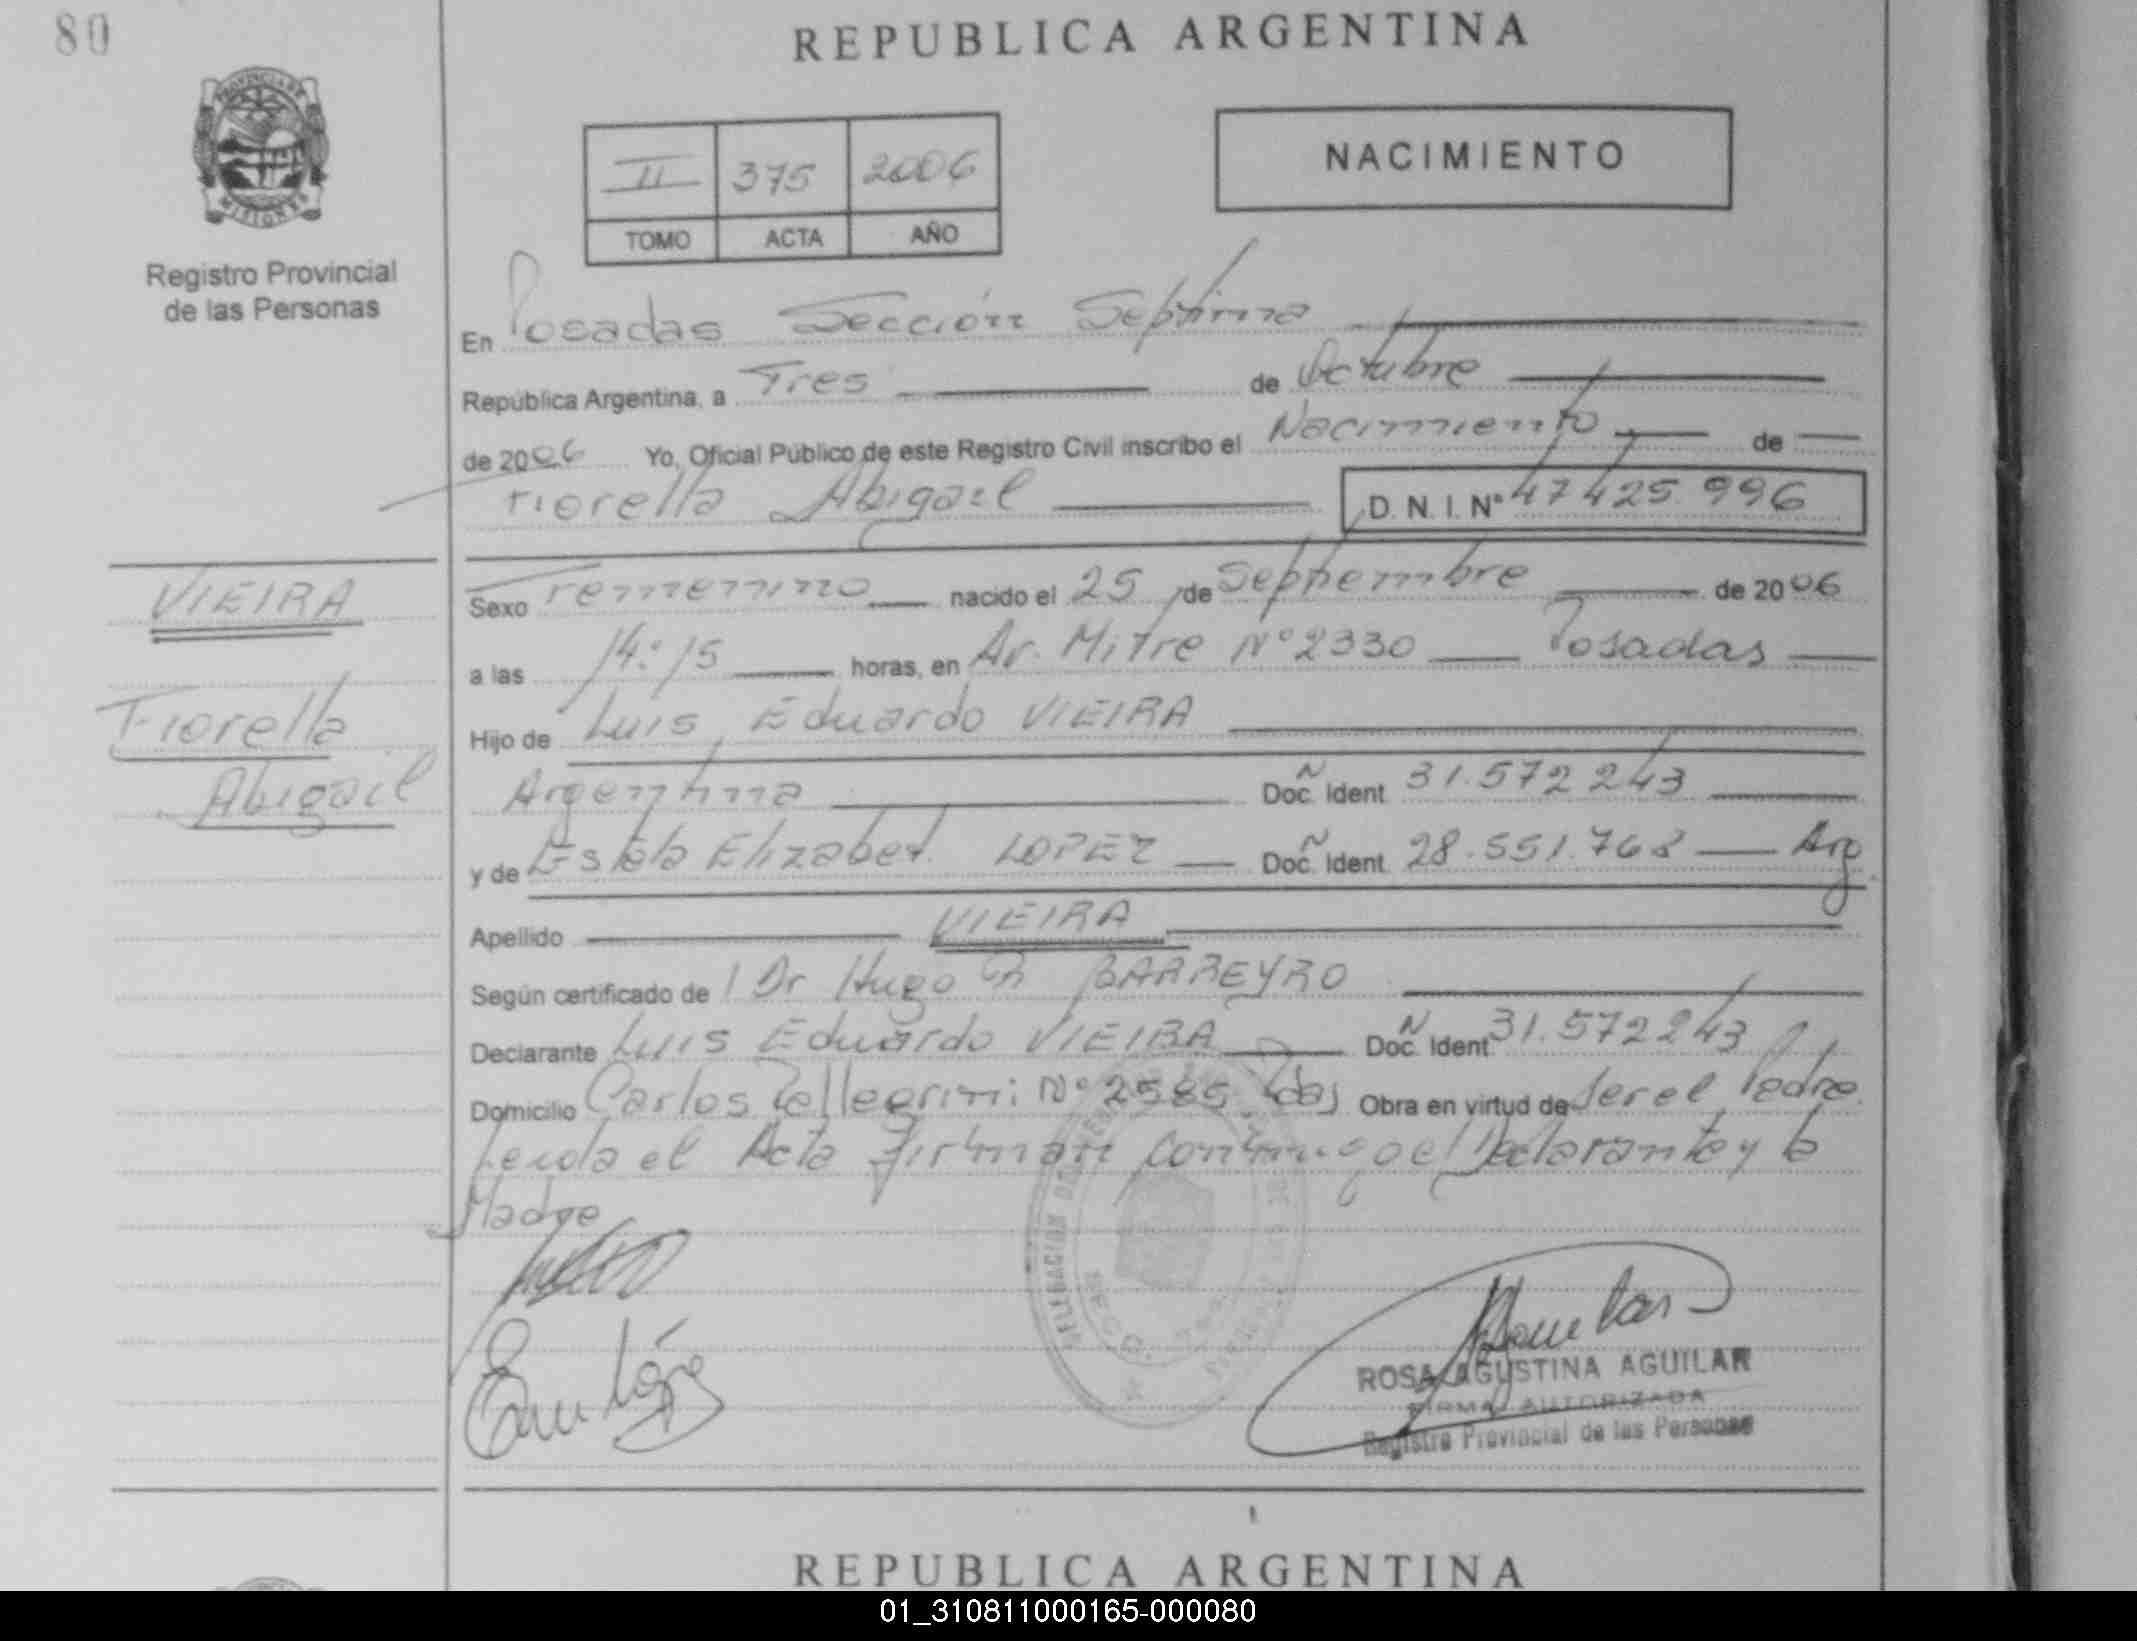 80
REPUBLICA ARGENTINA
PROVINCIA DE
MISIONES
Registro Provincial
de las Personas
II 375 2006
TOMO ACTA AÑO
NACIMIENTO
En Posadas Sección Septima
República Argentina, a Tres de Octubre
de 2006 Yo, Oficial Público de este Registro Civil inscribo el Nacimiento de
Fiorella Abigail D. N. I. Nº 47425.996
VIEIRA
Fiorella
Abigail
Sexo Femenino nacido el 25 de Septiembre de 2006
a las 14:15 horas, en Av. Mitre Nº 2330 Posadas
Hijo de Luis Eduardo VIEIRA
Argentina Doc. Ident. Ñ 31.572243
y de Estela Elizabet LOPEZ Doc. Ident. Ñ 28.551.768 Arg
Apellido VIEIRA
Según certificado de Dr Hugo BARREYRO
Declarante Luis Eduardo VIEIRA Doc. Ident. N 31.572243
Domicilio Carlos Pellegrini Nº 2585 Pdas Obra en virtud de Ser el Padre
Leida el Acta Firman conmigo el Declarante y la
Madre
López
ROSA AGUSTINA AGUILAR
FIRMA AUTORIZADA
Registro Provincial de las Personas
REPUBLICA ARGENTINA
01_310811000165-000080